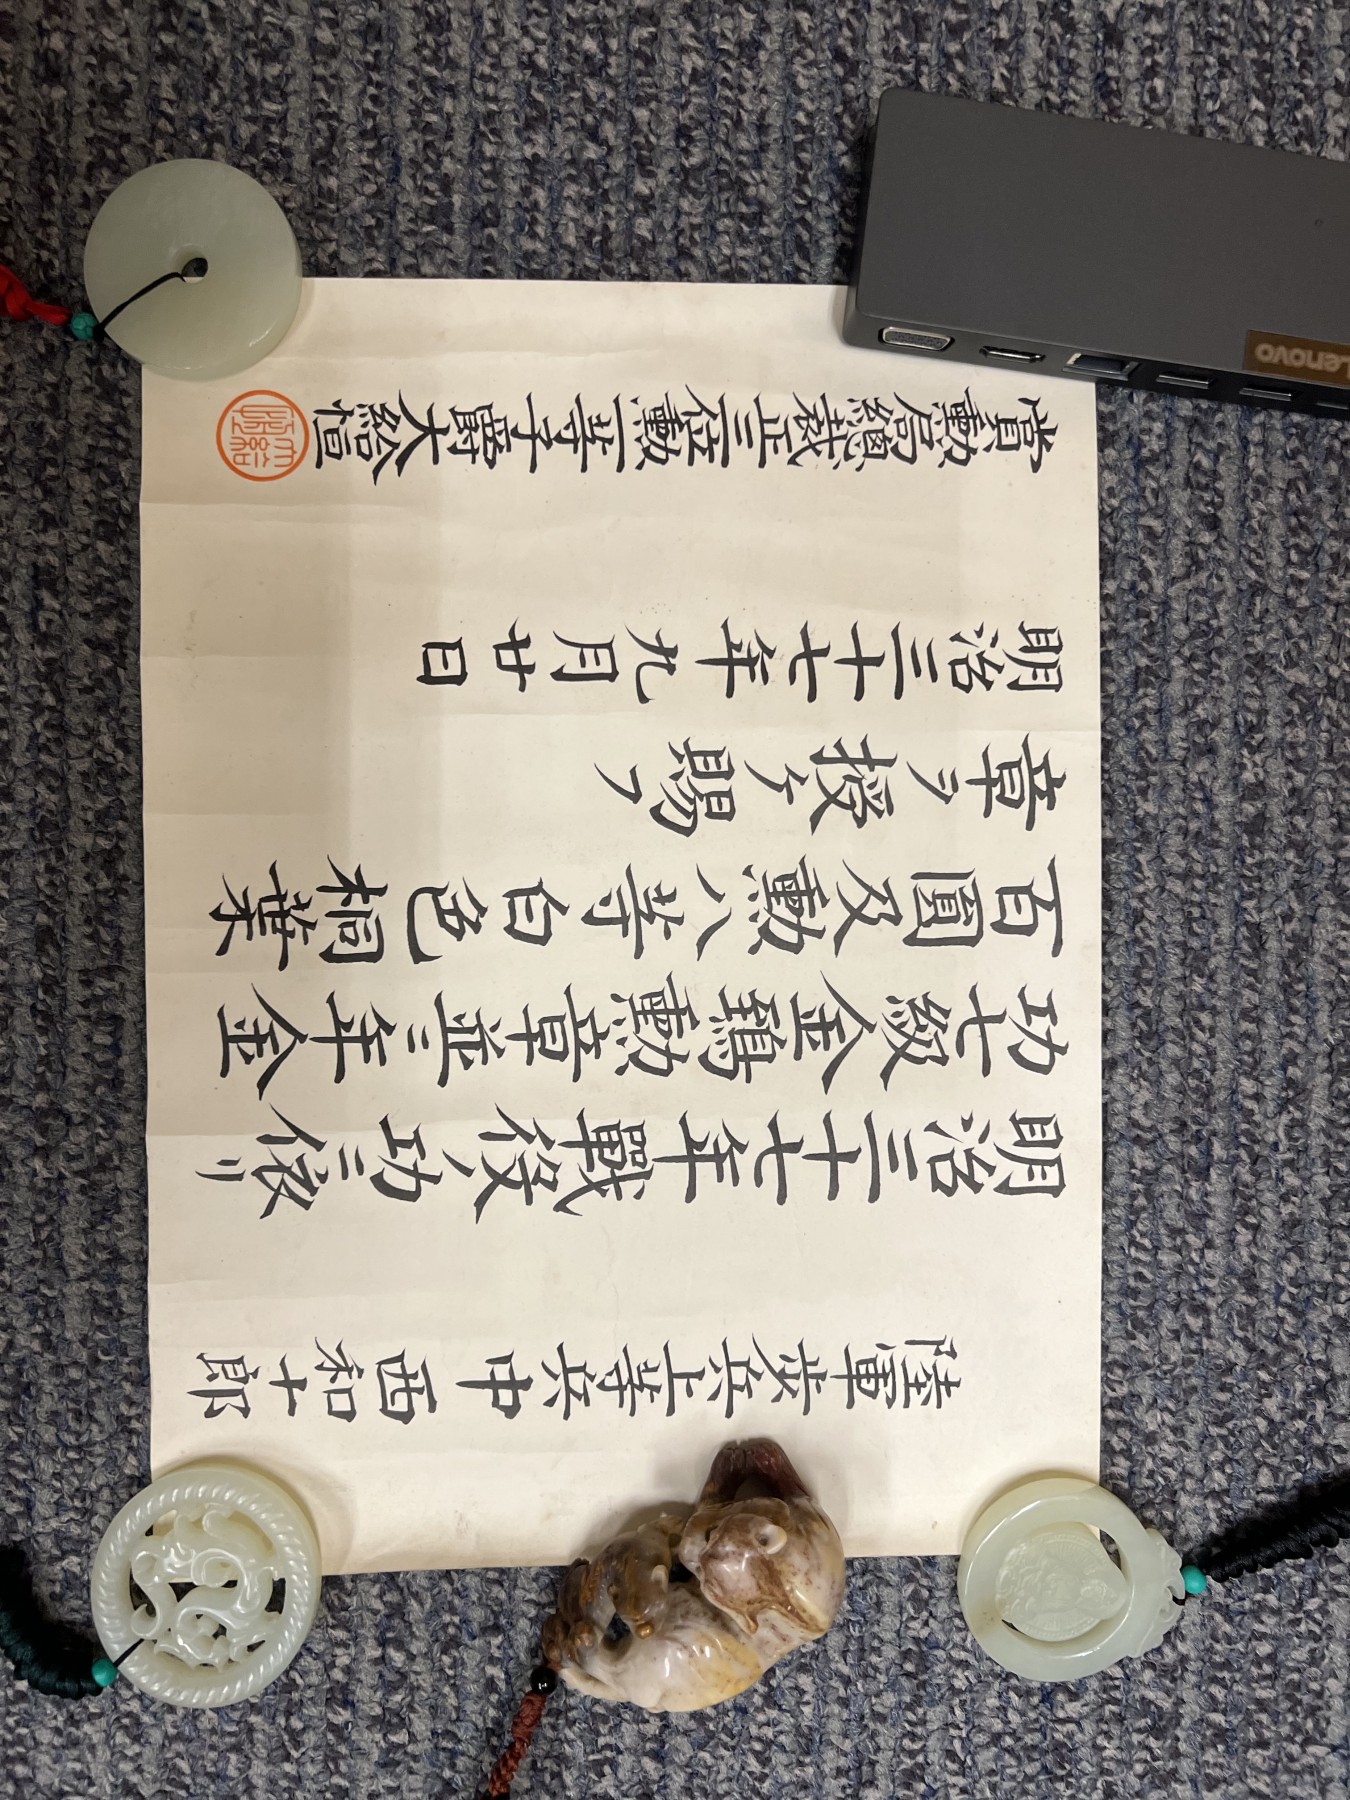 陸軍步兵上等兵中西和十郎
明治三十七年戰役ノ功ニ依リ
功七級金鵄勳章並ニ年金
百圓及勳八等白色桐葉
章ヲ授ケ賜フ
明治三十七年九月廿日
賞勳局總裁正三位勳一等子爵大給恒
Lenovo